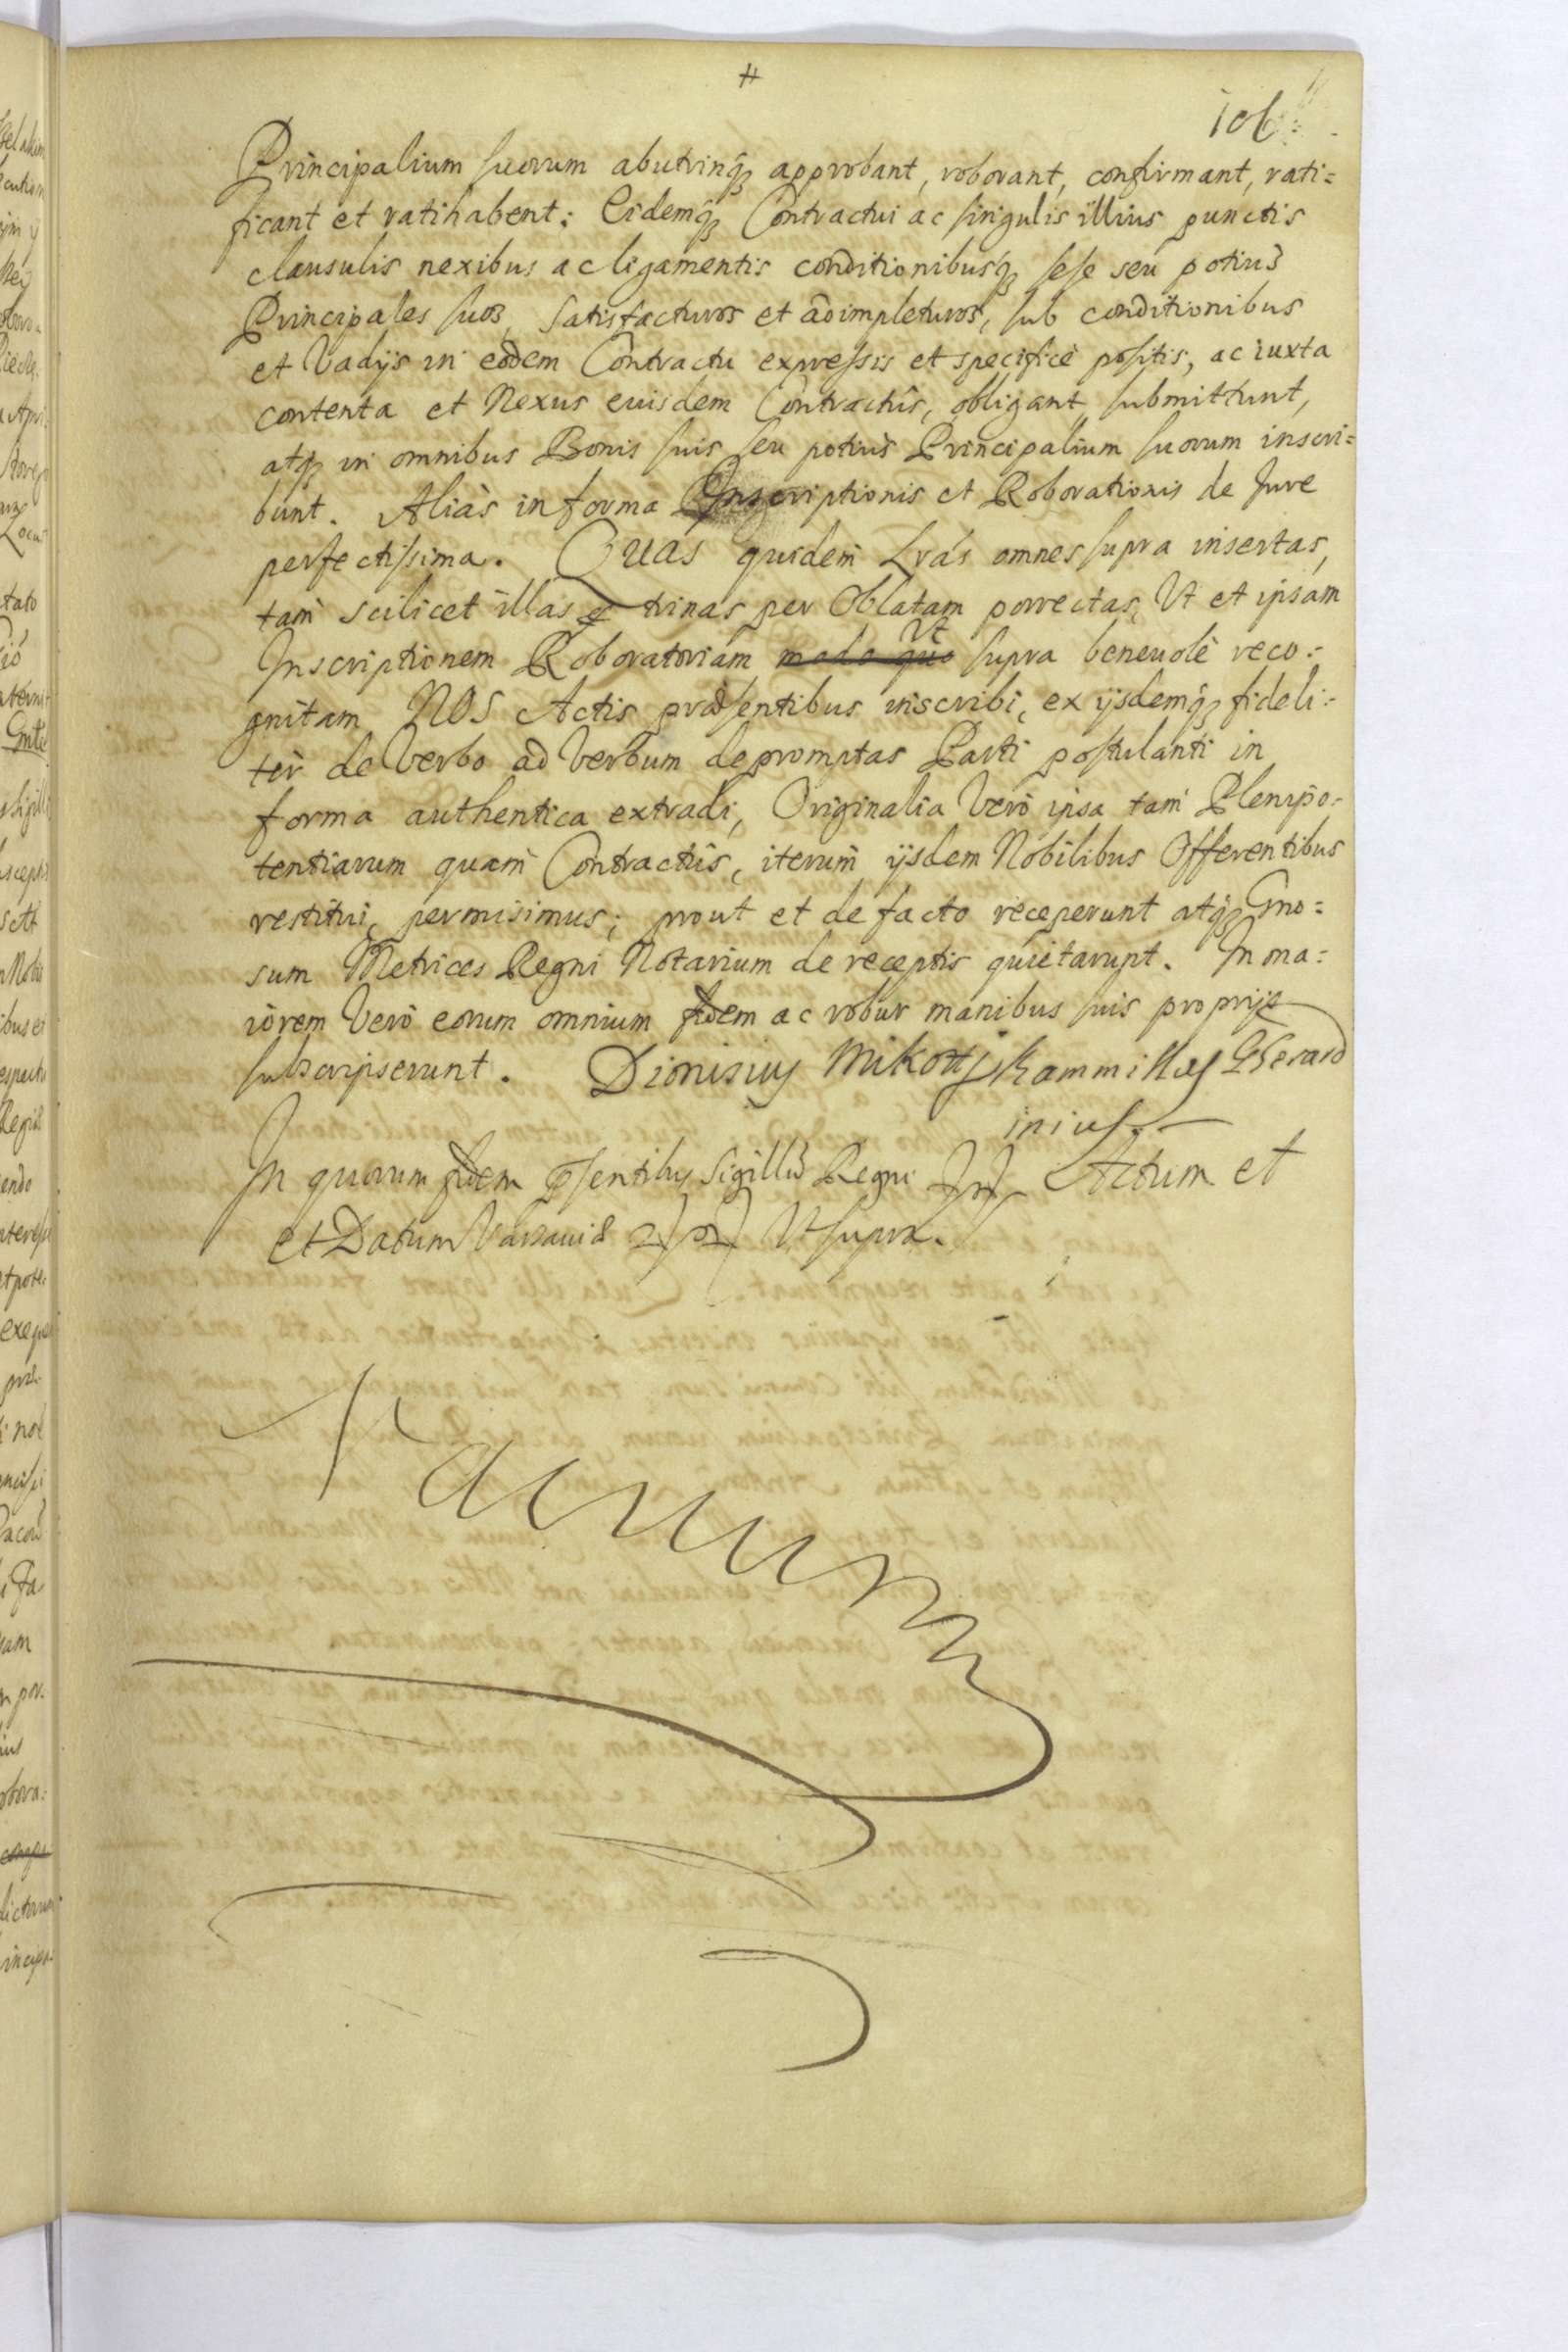 #
106
Principalium suorum abutrinq3 approbant, roborant, confirmant, rati=
ficant et ratihabent: Eidemq3 Contractui ac singulis illius punctis
clausulis nexibus ac ligamentis conditionibusq3 sese seu potius
Principales suos, satisfacturos et adimpleturos, sub conditionibus
et Vadijs in eodem Contractu expressis et specificè positis, ac iuxta
contenta et Nexus euisdem Contractûs, obligant, submittunt,
atq3 in omnibus Bonis suis seu potius Principalium suorum inscri=
bunt. Aliàs in forma Inscriptionis et Roborationis de Jure
perfectissima. QUAS quidem Lrãs omnes supra insertas,
tam scilicet illas trinas per Oblatam porrectas, Vt et ipsam
Inscriptionem Roboratoriam modo quo Vt supra beneuolè reco:
gnitam NOS Actis præsentibus inscribi, ex ijsdemq3 fideli:
ter de Verbo ad Verbum depromptas Parti postulanti in
forma authentica extradi, Originalia Verò ipsa tam Plenipo:
tentiarum quam Contractûs, iterum ijsdem Nobilibus Offerentibus
restitui, permisimus; prout et de facto receperunt atq3 Gno=
sum Metrices Regni Notarium de receptis quietarunt. In ma:
iorem Verò eorum omnium fidem ac robur manibus suis proprijs
subscripserunt. Dionisius Mikott Kammillus Gherard
inius.
In quorum fidem pñsentibus Sigillũ Regni Actum et
et Datum Varsauiæ Vt supra.